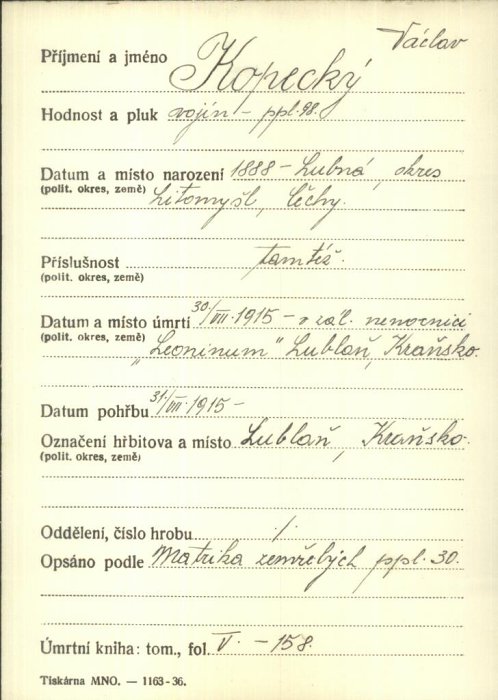 Václav
Příjmení a jméno Kopecký
Hodnost a pluk vojín – ppl. 98.
Datum a místo narození 1888 – Lubná, okres
(polit. okres, země) Litomyšl, Čechy.
Příslušnost tamtéž.
(polit. okres, země)
Datum a místo úmrtí 30/VII. 1915 – v zál. nemocnici
(polit. okres, země) „Leoninum" Lublaň, Kraňsko.
Datum pohřbu 31/VII. 1915 –
Označení hřbitova a místo Lublaň, Kraňsko.
(polit. okres, země)
Oddělení, číslo hrobu ./.
Opsáno podle Matrika zemřelých ppl. 30.
Úmrtní kniha: tom., fol. V. – 158.
Tiskárna MNO. — 1163-36.